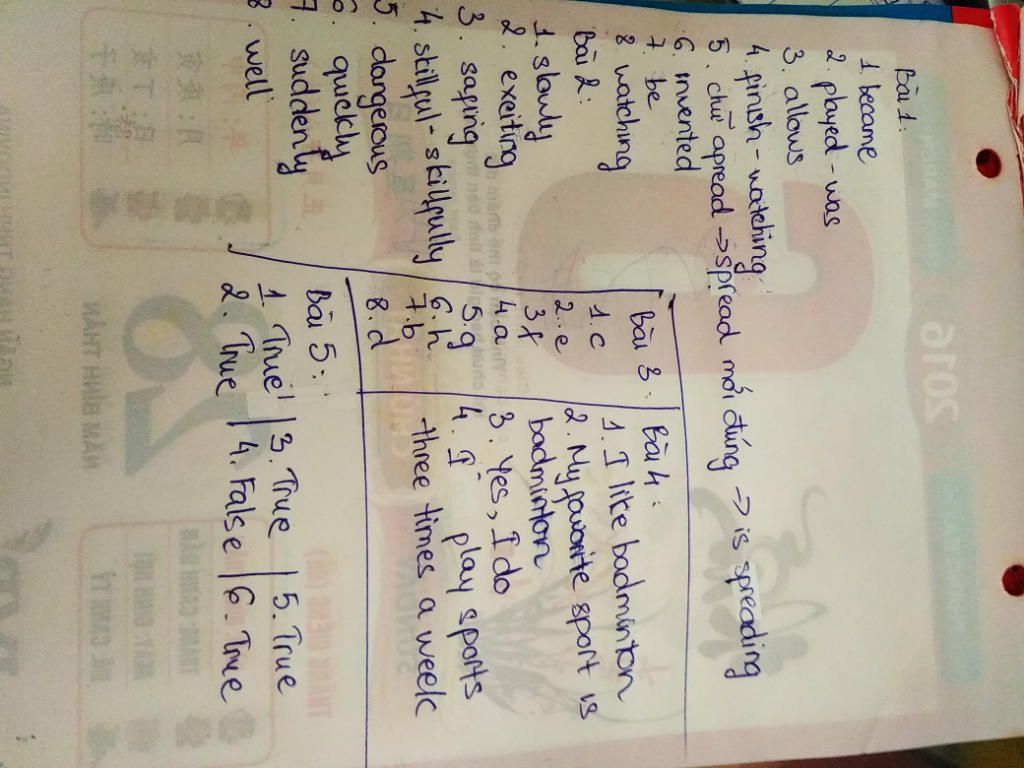 Bài 1:
1. became
2. played - was
3. allows
4. finish - watching
5. chữ apread -> spread mới đúng -> is spreading
6. invented
7. be
8. watching
Bài 2:
1. slowly
2. exciting
3. safing
4. skillful - skillfully
5. dangerous
6. quickly
7. suddenly
8. well
Bài 3:
1. c
2. e
3 f
4. a
5. g
6. h
7 b
8. d
Bài 4:
1. I like badminton
2. My favorite sport is
badminton
3. Yes, I do
4. I play sports
three times a week
Bài 5:
1. True | 3. True | 5. True
2. True | 4. False | 6. True
2016
28